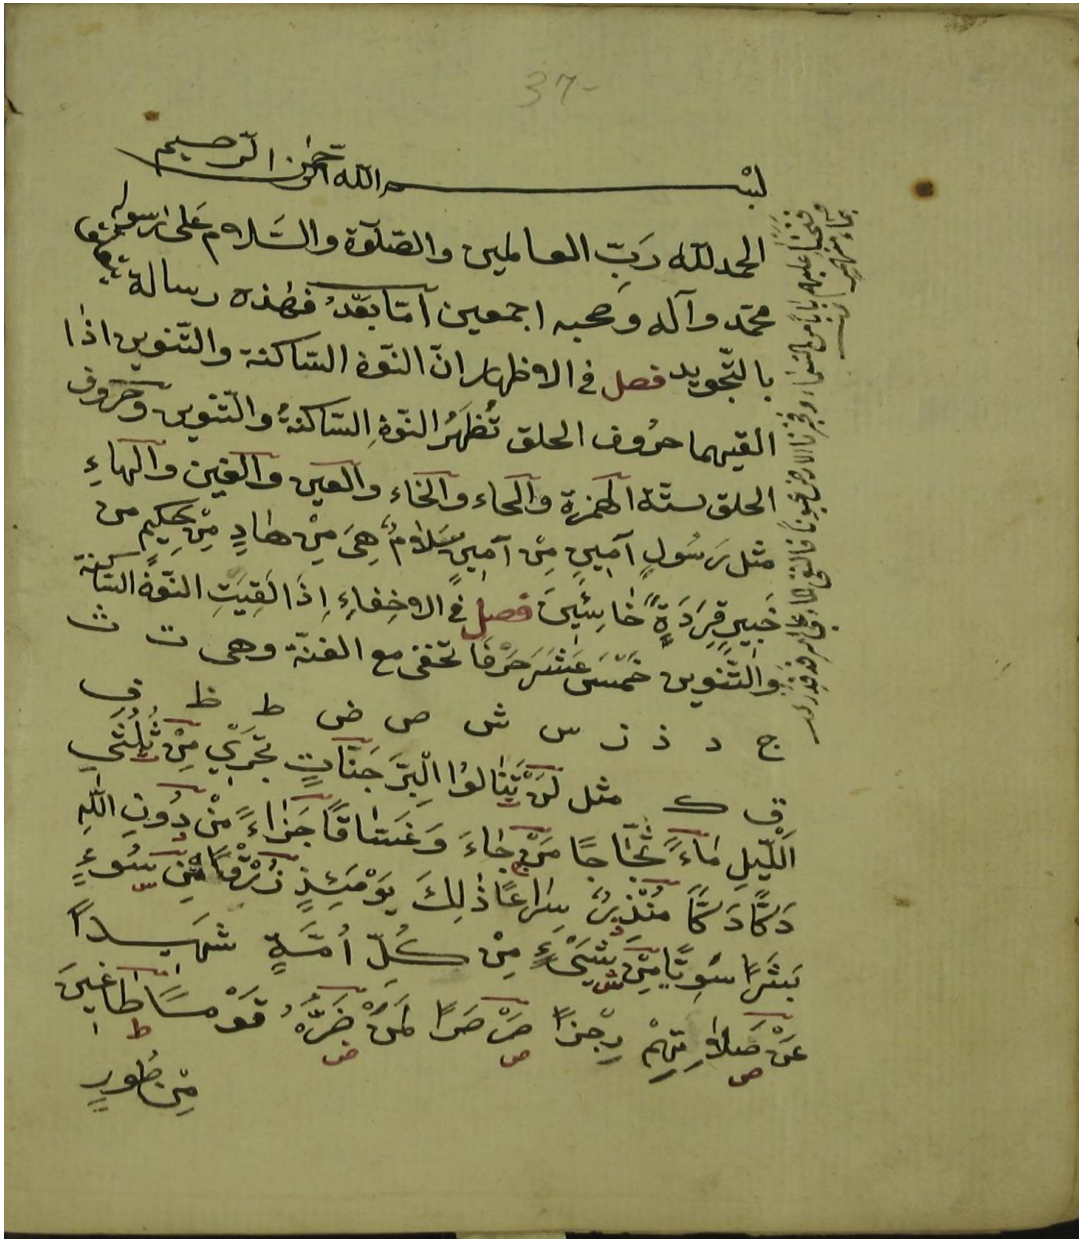 37-
بسم الله الرحمن الرحيم
الحمد لله رَبِّ العالمين والصّلوٰة والسّلام عَلٰى رسوله
محمّد وآله وصحبه اجمعين اَمّا بَعْدُ فهٰذه رسالة يتعلق
بالتّجويد فصل فى الاظهار انّ النّون السّاكنة والتّنوين اذا
القيهما حرُوف الحلق تُظْهَرُ النّونِ السّاكنةُ والتّنوين وحروف
الحلق ستّة الهمزة والحاء والخاء والعين والغين والهاءِ
مثل رَسُولٍ اَمِينٍ مِنْ اَمِينٍ سَلَامٌ هِىَ مِنْ هَادٍ مِنْ حَكِيمٍ من
خَبِيرٍ قِرَدَةً خَاسِئِينَ فصل فى الاخفاءِ اِذَا لَقِيَتِ النّونُ السّاكنة
والتّنوين خَمْسَ عَشَرَ حَرْفًا تخفى مع الغنّة وهى ت ث
ج د ذ ز س ش ص ض ط ظ ف
ق ك مثل لَنْ تَنَالُوا الْبِرَّ جَنَّاتٍ تَجْرِي مِنْ ثُلُثَىِ
الَّيْلِ مَاءً ثَجَّاجًا مَنْ جَاءَ وَغَسَّاقًا جَزَاءً مِنْ دُونِ اللّٰهِ
دَكًّا دَكًّا مُنْذِرٌ سِرَاعًا ذٰلِكَ يَوْمَئِذٍ زُرْقًا مِنْ سُوءٍ
بَشَرًا سَوِيًّا مِنْ شَىْءٍ مِنْ كُلِّ اُمَّةٍ شَهِيدًا
عَنْ صَلَاتِهِمْ رِجْزًا صَرْصَرًا لَمَنْ ضَرُّهُ قَوْمًا طَاغِينَ
مِنْ طُورٍ